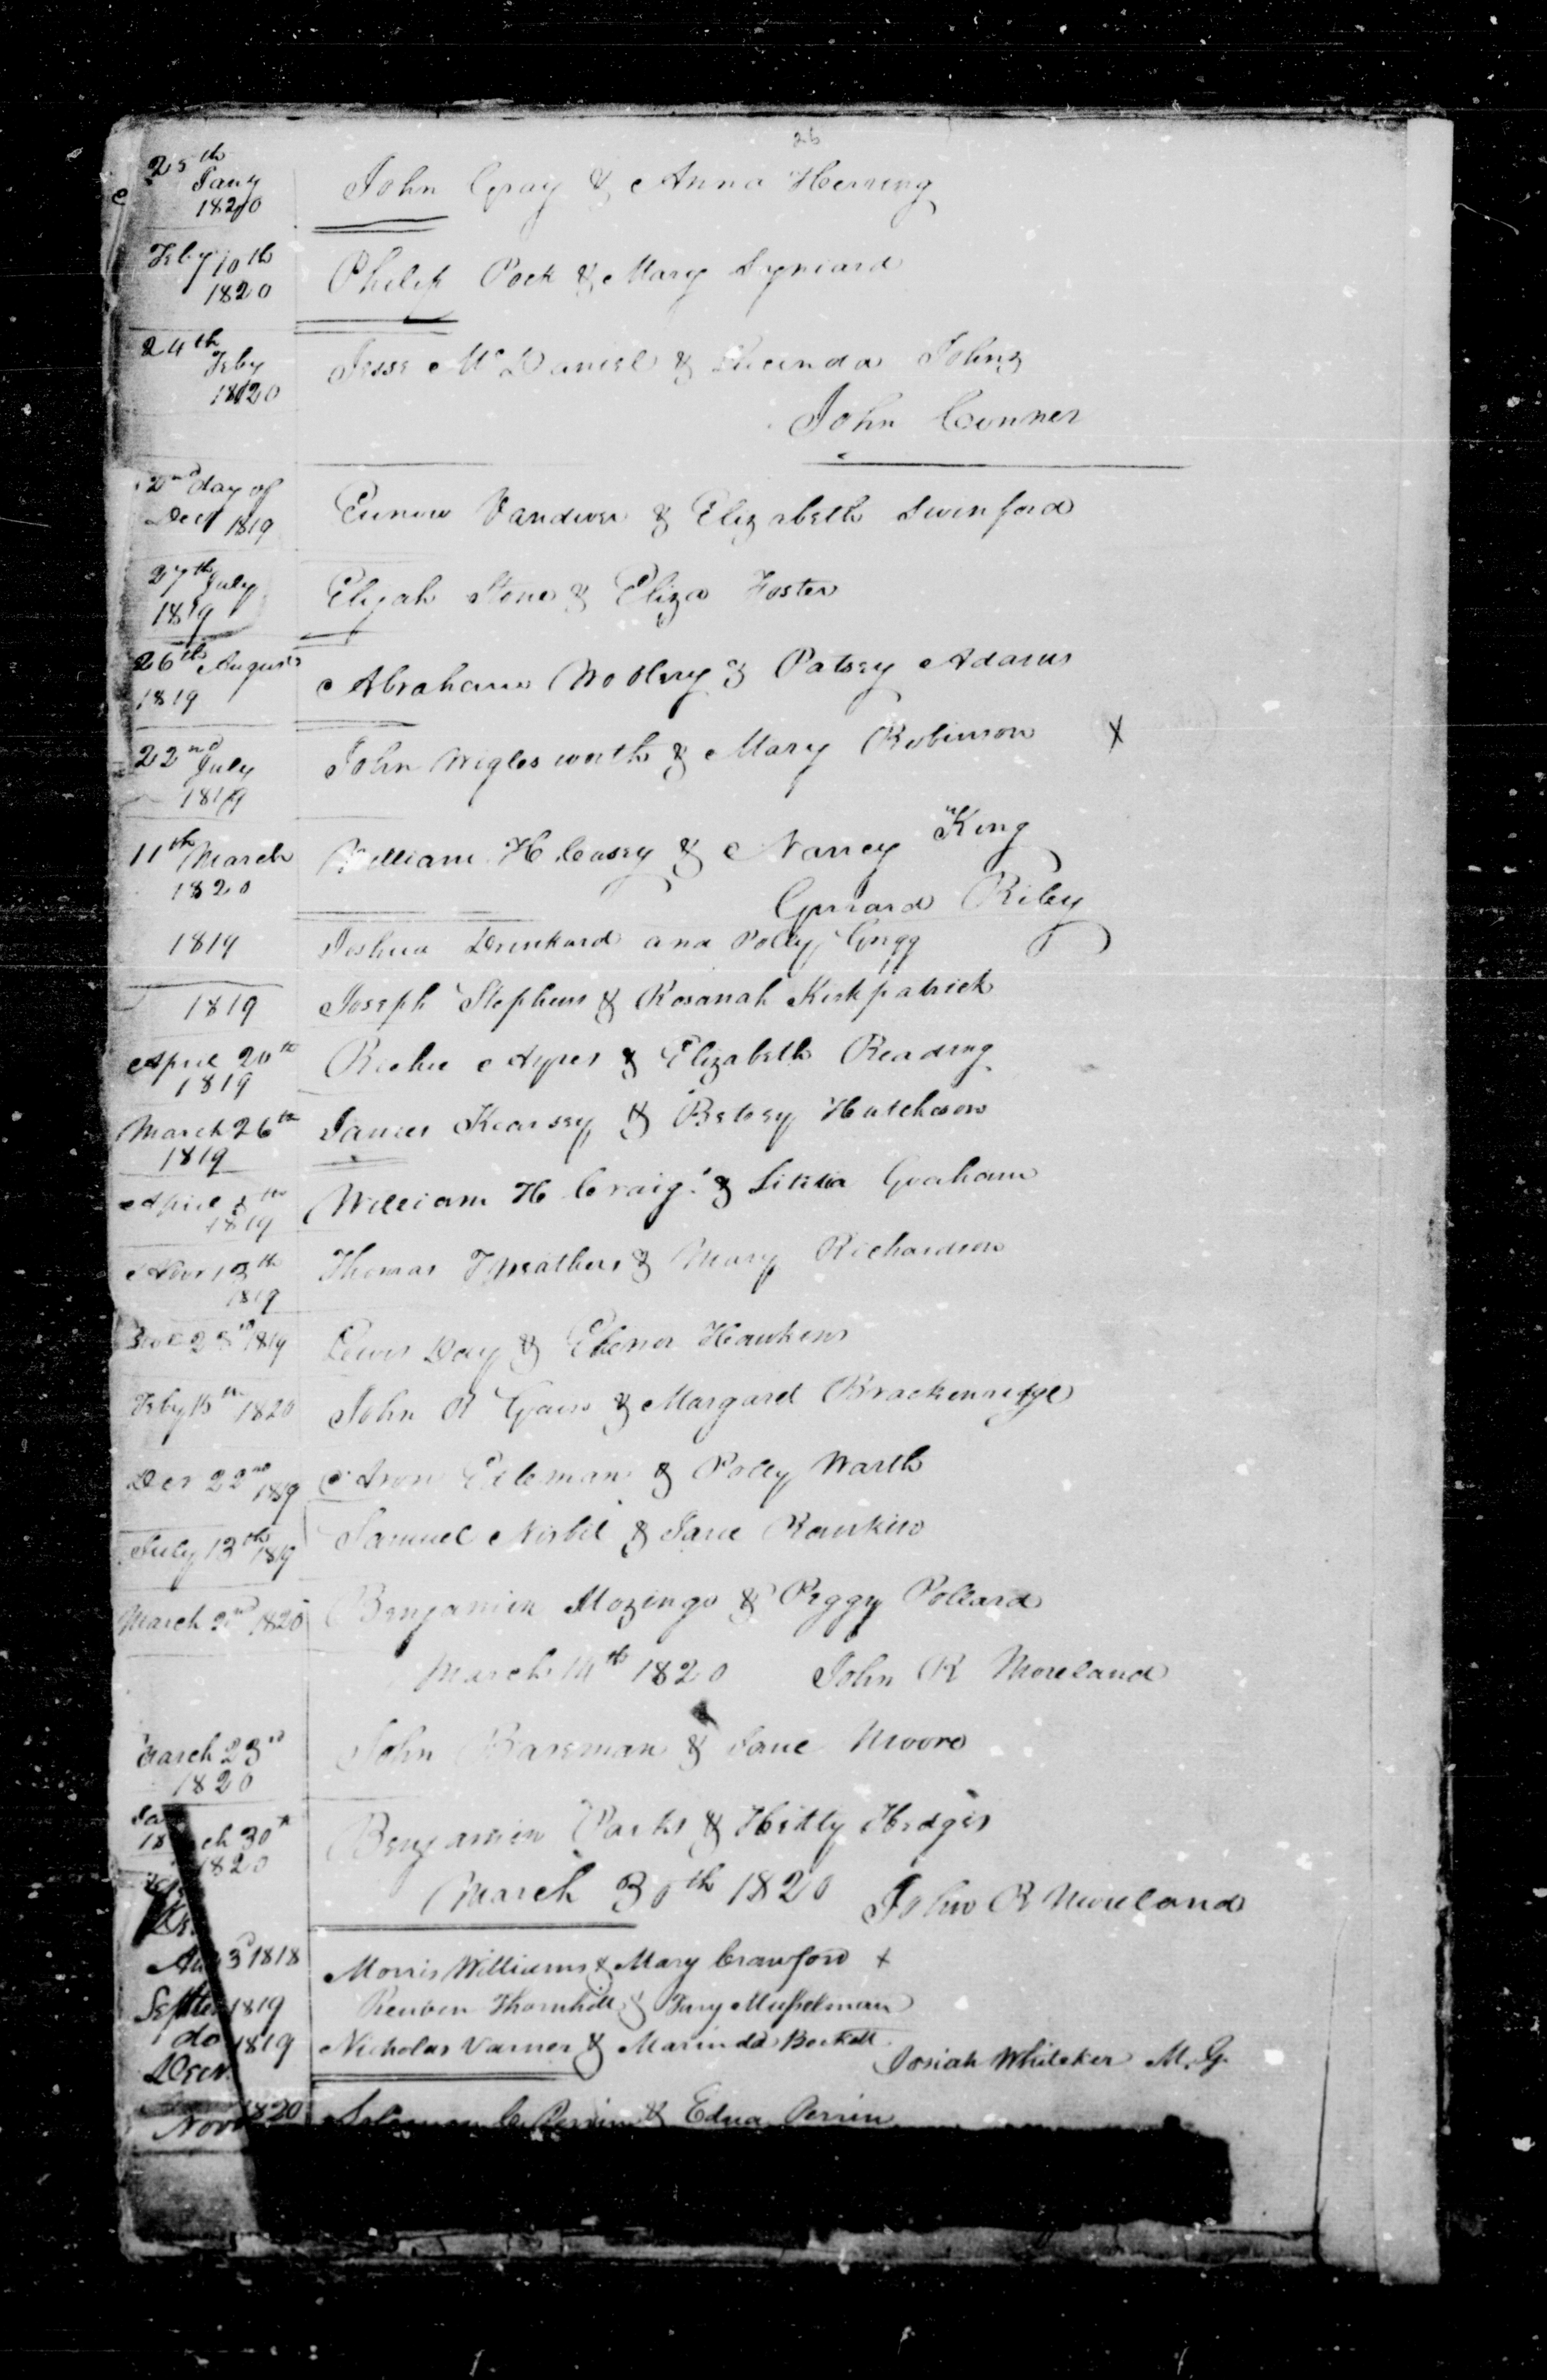 26
25th Jany 1820 John Gray & Anna Herring
Feby 10th 1820 Philip Pock & Mary
24th Feby 1820 Jesse McDaniel & Lucinda Johns
John Conner
2nd day of Decr 1819 Vandiver & Elizabeth Swinford
27th July 1819 Elijah Stone & Eliza Foster
26th August 1819 Abraham & Patsey Adams
22nd July 1819 John Wiglesworth & Mary Robinson X
11th March 1820 William H Casey & Nancy King
Gerrard Riley
1819 Joshua Drinkard and Polly Gregg
1819 Joseph Stephens & Rosanah Kirkpatrick
April 20th 1819 Ayres & Elizabeth Reading
March 26th 1819 James Kearsey & Betsey Hutcheson
April 8th 1819 William H Craig & Lititia Graham
Novr 13th 1819 Thomas & Mary Richardson
23rd 1819 Lewis Day & Hawkins
Feby 15th 1820 John R & Margaret Brackenridge
Decr 22nd 1819 Aron & Polly Warth
July 13th 1819 Samuel Nisbit & Jane Rankin
March 2nd 1820 Benjamin Mozingo & Peggy Pollard
March 14th 1820 John R Moreland
March 23rd 1820 John Baseman & Jane Moore
ch 30th 1820 Benjamin Parks & Hetty Hedges
March 30th 1820 John R Moreland
3d 1818 Morris Williams & Mary Crawford +
1819 Reuben Thornhill & Musselman
do 1819 Nicholas Varner & Marinda Beckett
Josiah Whitaker M.G.
Decr.
1820 C. Perrin & Edna Perrin
Nov